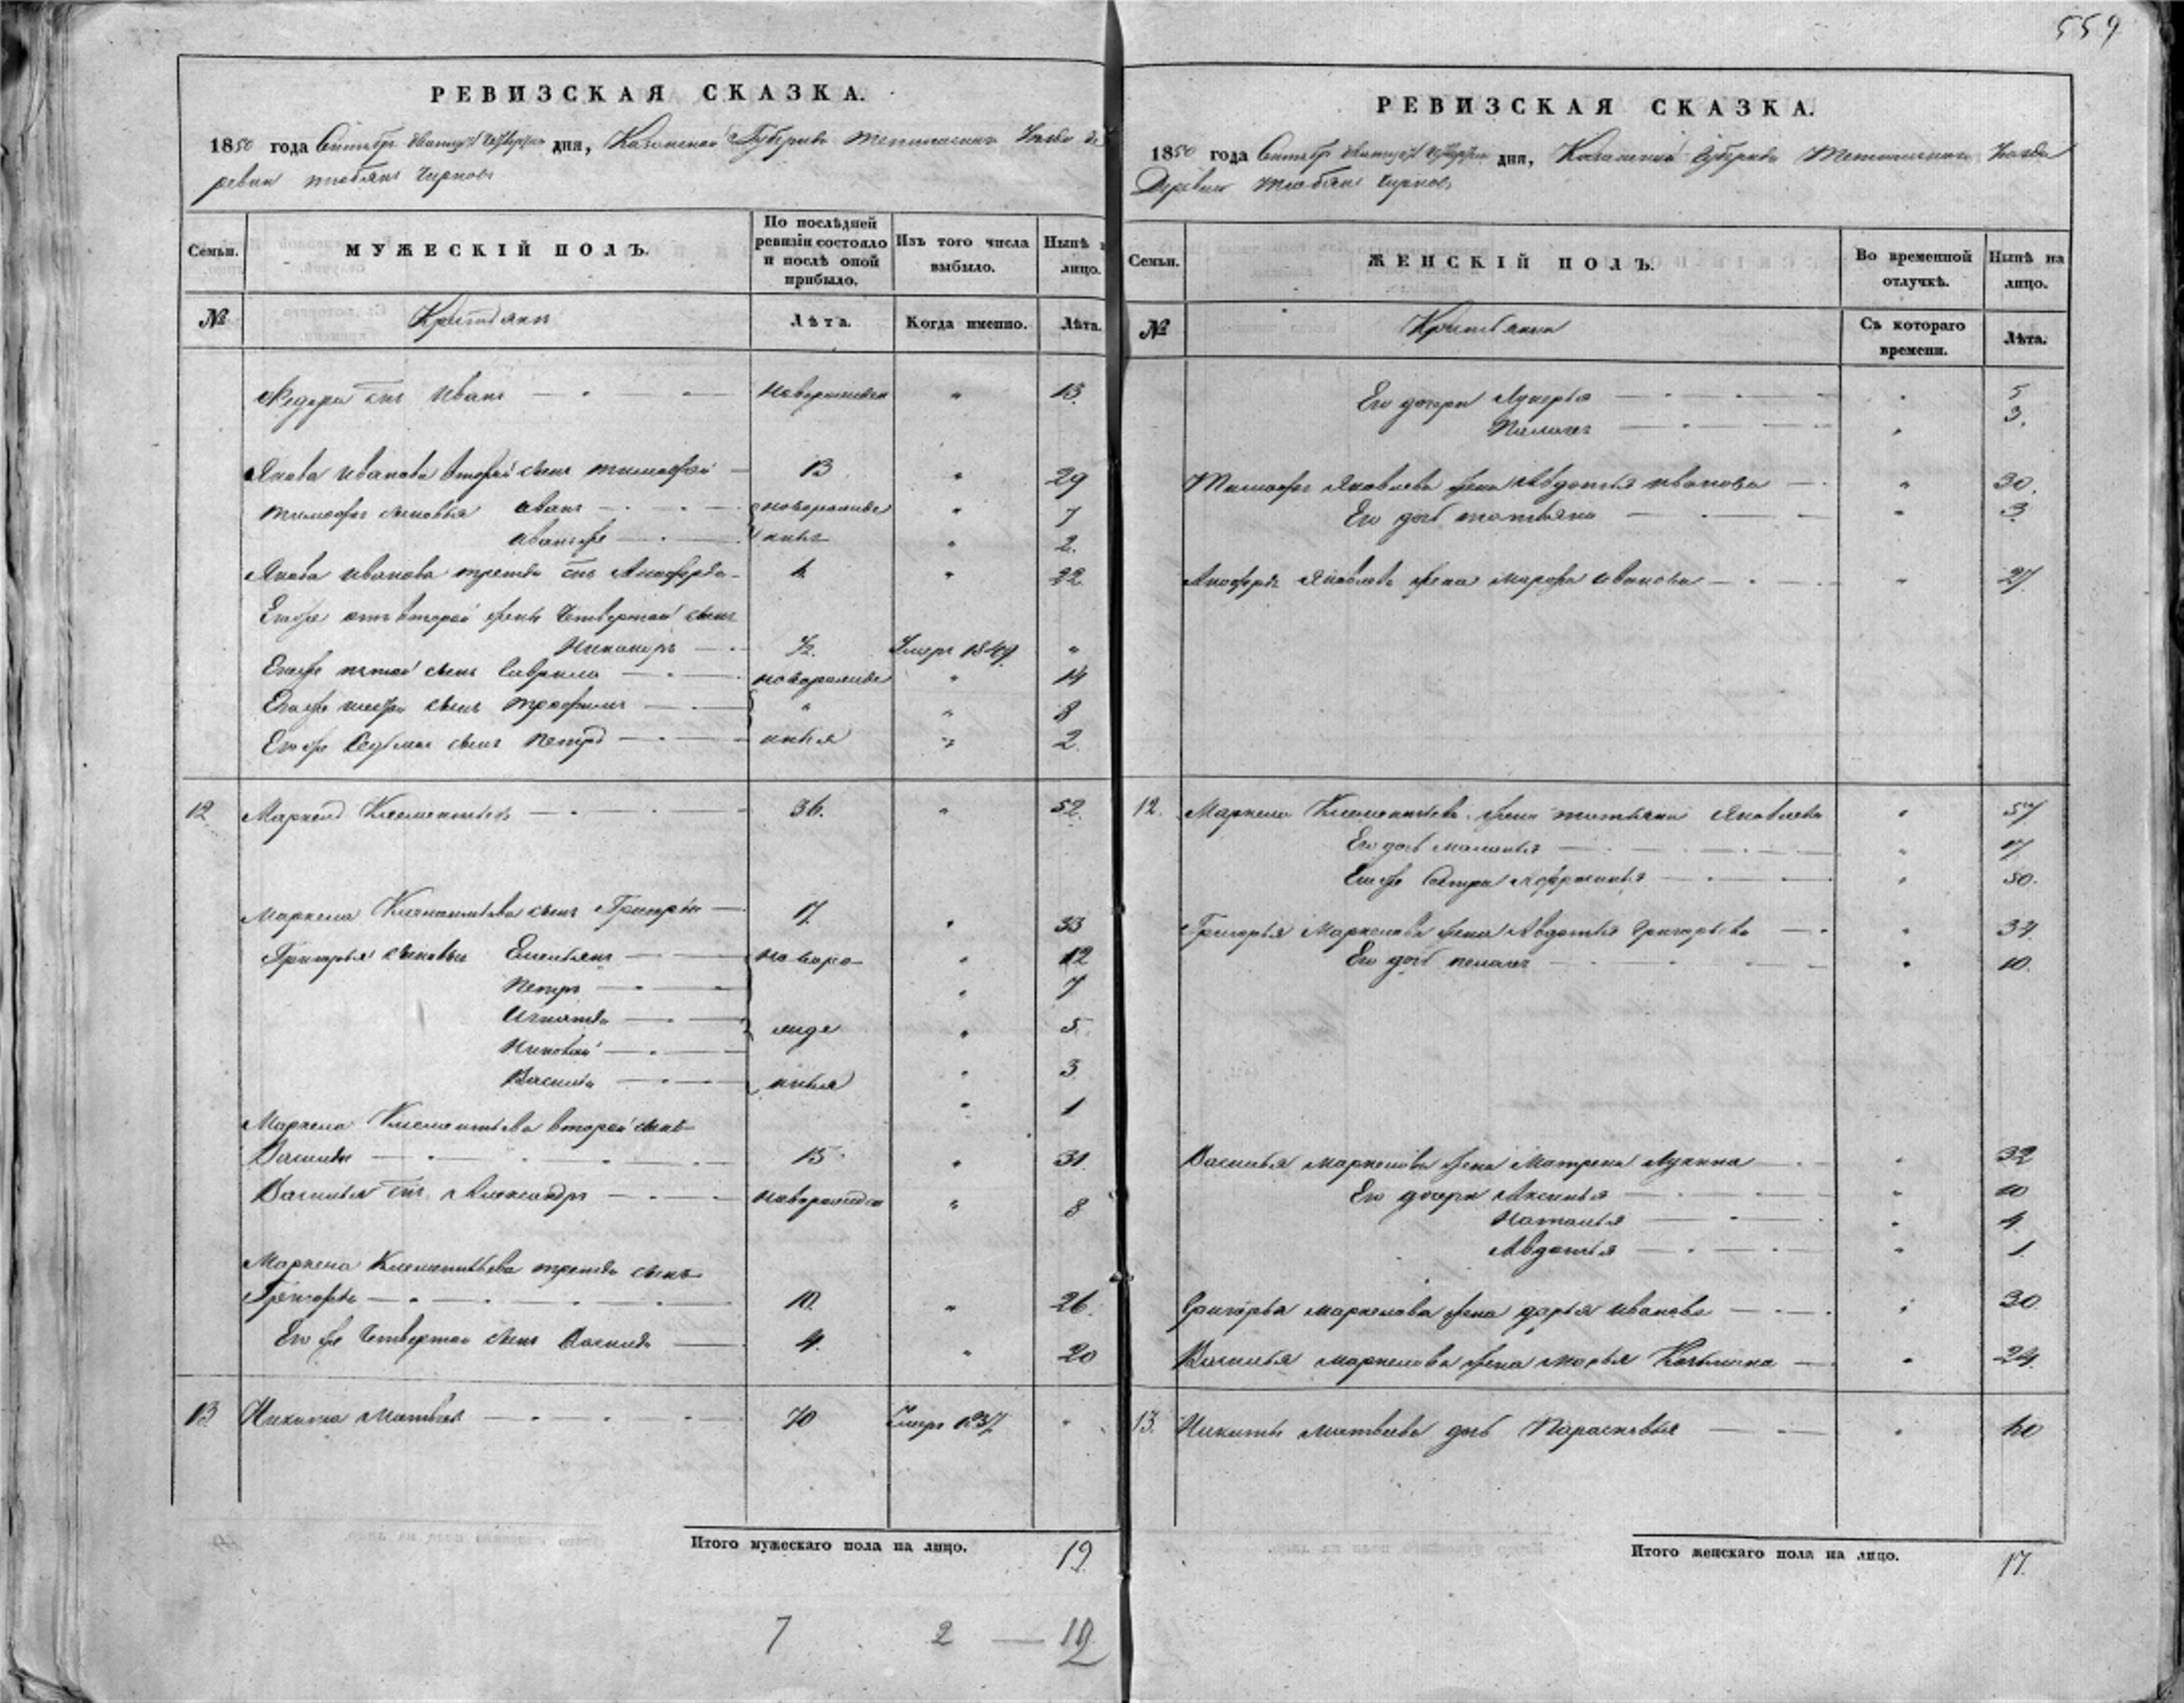 559
РЕВИЗСКАЯ СКАЗКА.
1850 года Сентября двадцать четвертого дня, Казанской Губернии Тетюшскаго Уезда де
ревни
Семьи.
МУЖЕСКІЙ ПОЛЪ.
По послѣдней ревизіи состояло и послѣ оной прибыло.
Изъ того числа выбыло.
Нынѣ
лицо.
№
Крестьяне
Лѣта.
Когда именно.
Лѣта.
Федора сынъ Иванъ новорожден " 13.
Якова Иванова второй сынъ Тимофей 13 " 29
Тимофея сыновья Иванъ новорожде " 7
" 2.
Якова Иванова третий сынъ 22
Его же отъ второй жены четвертой сынъ
Никаноръ 1/2. Умеръ 1849 "
Его же пятой сынъ Гаврила новорожде " 14
Его же шестой сынъ Трофимъ " " 8
Его же седьмой сынъ Петръ " 2.
12 Маркелъ Клементьевъ 36. " 52.
Маркела Клементьева сынъ Григорий 17. " 33
Григорья сыновья Емельянъ новоро " 12
Петръ " 7
Игнатий жде " 5.
Николай " 3
Василий " 1
Маркела Клементьева второй сынъ
Василий 15 " 31.
Василья сынъ Александръ новорожден " 8
Маркела Клементьева третий сынъ
Григорий 10. " 26.
Его же четвертой сынъ Василий 4. " 20
13 Никита Матвеевъ 70 Умеръ 1837 "
Итого мужескаго пола на лицо. 19.
7 2 — 19
2
РЕВИЗСКАЯ СКАЗКА.
1850 года Сентября двадцать четвертого дня, Казанской Губернии Тетюшскаго Уезда
Деревни
Семьи.
ЖЕНСКІЙ ПОЛЪ.
Во временной отлучкѣ.
Нынѣ на лицо.
№
Крестьяне
Съ котораго времени.
Лѣта.
Его дочери Лукерья " 5
" 3.
Тимофея Яковлева жена Авдотья Иванова " 30.
Его дочь Татьяна " 3.
Яковлева жена Марфа Иванова " 27.
12. Маркела Клементьева жена Татьяна Яковлева " 57
Его дочь Маланья " 17.
Его же сестра " 50.
Григорья Маркелова жена Авдотья Григорьева " 34.
Его дочь " 10.
Василья Маркелова жена Матрена Лукина " 32
Его дочери Аксинья " 10
Наталья " 4.
Авдотья " 1.
Григорья Маркелова жена Дарья Иванова " 30
Василья Маркелова жена Марья Козьмина " 24.
13. Никиты Матвеева дочь Парасковья " 40
Итого женскаго пола на лицо. 17.